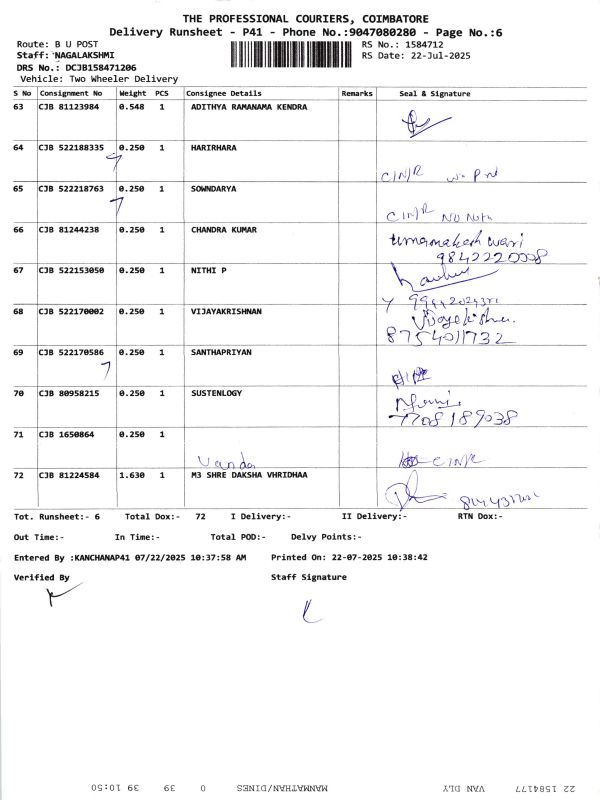 THE PROFESSIONAL COURIERS, COIMBATORE
Delivery Runsheet - P41 - Phone No.:9047080280 - Page No.:6
Route: B U POST RS No.: 1584712
Staff: NAGALAKSHMI RS Date: 22-Jul-2025
DRS No.: DCJB158471206
Vehicle: Two Wheeler Delivery
S No Consignment No Weight PCS Consignee Details Remarks Seal & Signature
63 CJB 81123984 0.548 1 ADITHYA RAMANAMA KENDRA
64 CJB 522188335 0.250 1 HARIRHARA
C/N/R
65 CJB 522218763 0.250 1 SOWNDARYA
C/N/R
66 CJB 81244238 0.250 1 CHANDRA KUMAR
umamakesh wari
9842220008
67 CJB 522153050 0.250 1 NITHI P
68 CJB 522170002 0.250 1 VIJAYAKRISHNAN
8754011732
69 CJB 522170586 0.250 1 SANTHAPRIYAN
70 CJB 80958215 0.250 1 SUSTENLOGY
7708189038
71 CJB 1650864 0.250 1
C/N/R
72 CJB 81224584 1.630 1 M3 SHRE DAKSHA VHRIDHAA
Tot. Runsheet:- 6 Total Dox:- 72 I Delivery:- II Delivery:- RTN Dox:-
Out Time:- In Time:- Total POD:- Delvy Points:-
Entered By :KANCHANAP41 07/22/2025 10:37:58 AM Printed On: 22-07-2025 10:38:42
Verified By Staff Signature
22 1584177 VAN DLY MANMATHAN/DINES 0 39 39 10:50